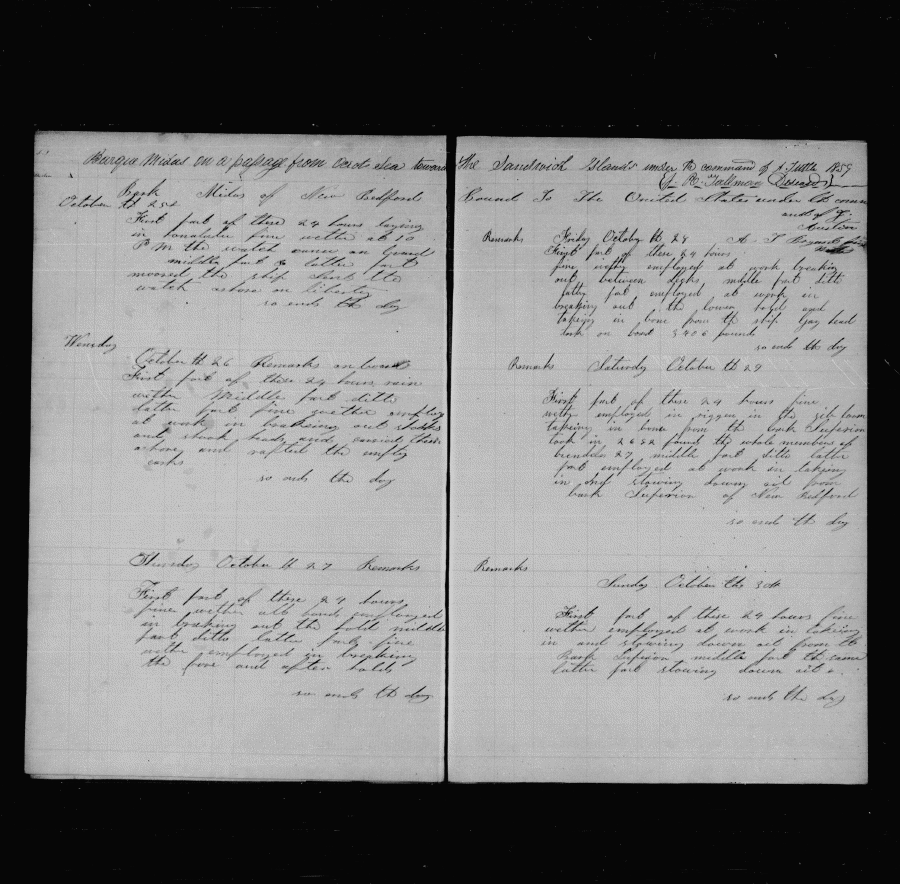 Barque Midas on a passage from Ocrots Sea towards
Bark Midas of New Bedford
October th 25th
First part of these 24 hours laying
in honalulu fine wether at 10
P M the watch came on board
middle part & latter part
moored the ship
watch ashore on liberty
so ends the day
Wensday
October th 26 Remarks on board
First part of these 24 hours rain
wether Middle part ditto
latter part fine wether employ
at work in breaking out
and heads and them
ashore and rafted the empty
casks
so ends the day
Thursday October th 27 Remarks
First part of these 24 hours
fine wether all hands employed
in braking out the hold middle
part ditto latter part fine
wether employed in breaking
the fore and after holds
so ends the day
the Sandwich Islands under the command of J. Tuttle 1859
J. R. Tallman
Bound To The United States under the comm
and of
Remarks Friday October th 28
First part of these 24 hours
fine wethy employed at work breaking
out between decks middle part ditto
latter part employed at work in
breaking out the lower hold and
takeing in bone from the ship Gay head
took on board pounds
so ends the day
Remarks Saturday October th 29
First part of these 24 hours fine
wethy employed in riggen in the jib boom
takeing in bone from the bark Superion
took in 2652 pounds the whole members of
bundles 27 middle part ditto latter
part employed at work in takeing
in and stowing down oil from
bark Superion of New Bedford
so ends the day
Remarks
Sunday October the 30th
First part of these 24 hours fine
wether employed at work in takeing
in and stowing down oil from th
Bark Superion middle part the same
latter part stowing down oil
so ends the day